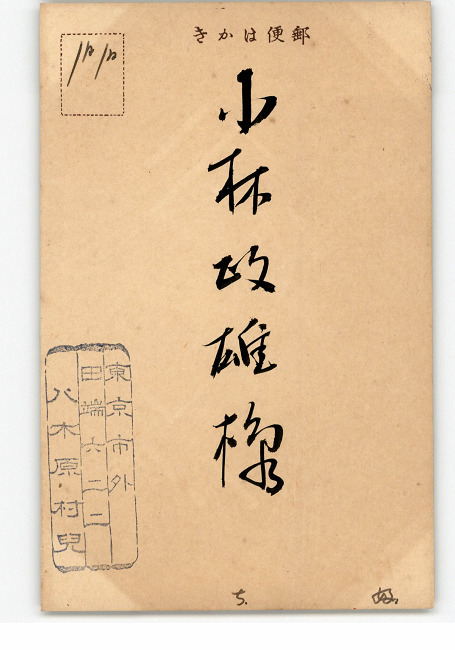 きかは便郵
小林政雄様
東京市外
田端六二二
八木原村兒
ち